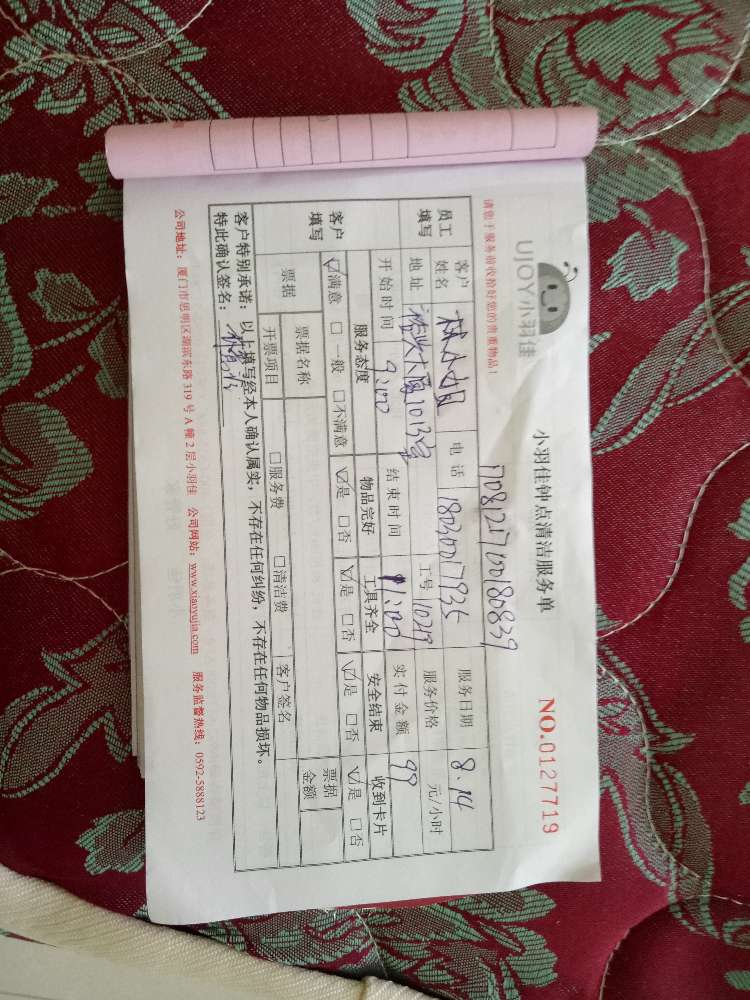 UJOY小羽佳
小羽佳钟点清洁服务单
NO.0127719
请您于服务前收拾好您的贵重物品！
17081217100180839
员工填写
客户姓名 林小姐 电话 18020017836 服务日期 8.14
地址 大厦1013室 工号 10219 服务价格 元/小时
开始时间 9:00 结束时间 11:00 实付金额 99
客户填写
服务态度 物品完好 工具齐全 安全结束 收到卡片
☑满意 □一般 □不满意 ☑是 □否 ☑是 □否 ☑是 □否 ☑是 □否
票据 票据名称 票据金额
开票项目 □服务费 □清洁费 客户签名
客户特别承诺：以上填写经本人确认属实，不存在任何纠纷，不存在任何物品损坏。
特此确认签名：
公司地址：厦门市思明区湖滨东路 319 号 A 幢 2 层小羽佳 公司网站：www.xiaoyujia.com 服务监督热线：0592-5888123